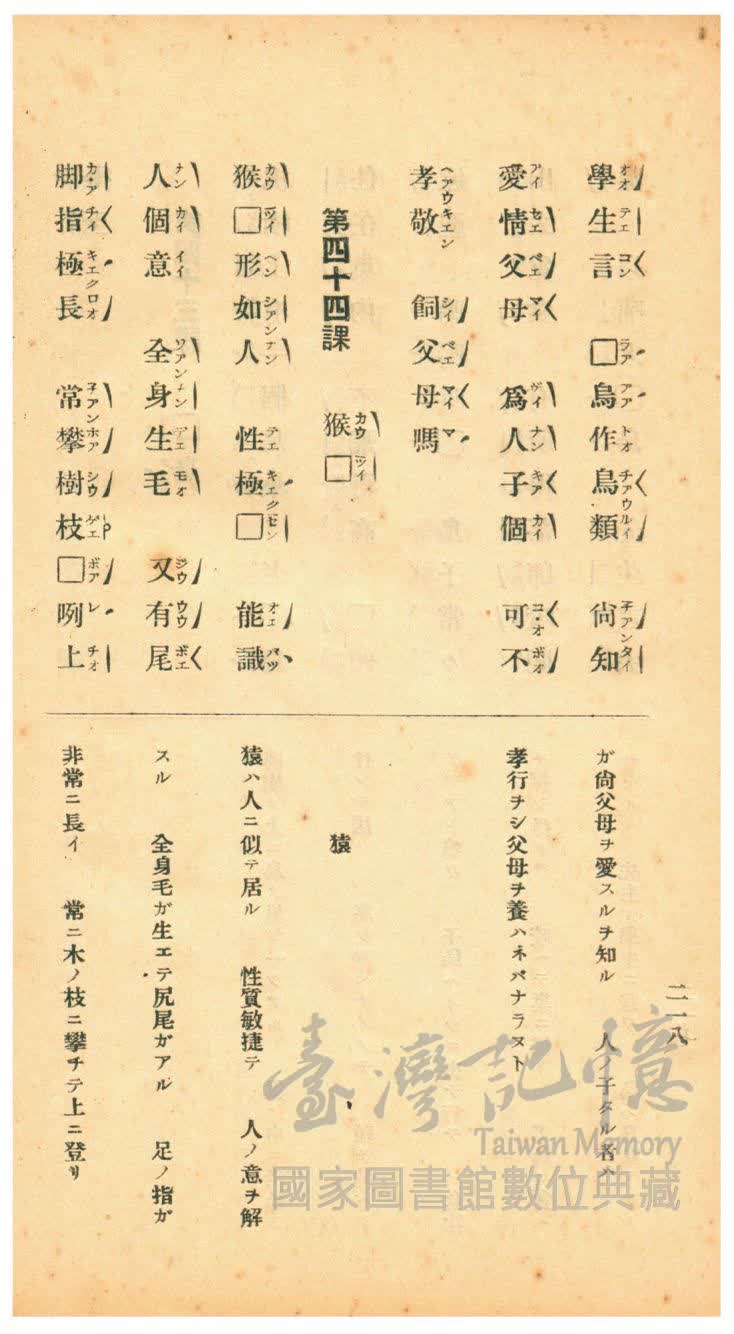 二一八
學生言□烏作鳥類尙知
愛情父母 爲人子個可不
孝敬 飼父母嗎
第四十四課 猴□
猴□形如人 性極□ 能識
人個意 全身生毛 又有尾
脚指極長 常攀樹枝□咧上
ガ尙父母ヲ愛スルヲ知ル 人ノ子タル者ハ
孝行ヲシ父母ヲ養ハネバナラヌト
猿
猿ハ人ニ似テ居ル 性質敏捷テ 人ノ意ヲ解
スル 全身毛ガ生エテ尻尾ガアル 足ノ指ガ
非常ニ長イ 常ニ木ノ枝ニ攀チテ上ニ登リ
臺灣記憶
Taiwan Memory
國家圖書館數位典藏